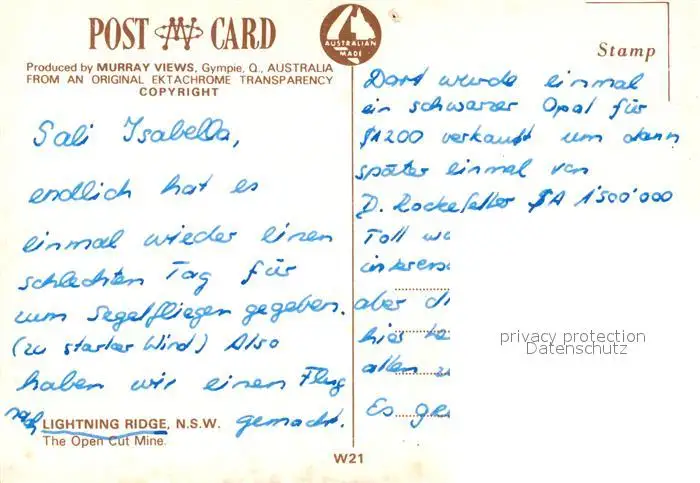 POST CARD
AUSTRALIAN
MADE
Stamp
Produced by MURRAY VIEWS, Gympie, Q., AUSTRALIA
FROM AN ORIGINAL EKTACHROME TRANSPARENCY
COPYRIGHT
Sali Isabella,
endlich hat es
einmal wieder einen
schlechten Tag für
zum Segelfliegen gegeben.
(zu starker Wind) Also
haben wir einen Flug
nach LIGHTNING RIDGE, N.S.W. gemacht.
The Open Cut Mine.
Dort wurde einmal
ein schwarzer Opal für
$A200 verkauft um dann
später einmal von
D. Rockefeller $A 1'500'000
Toll
aber
hier
allen
Es
privacy protection
Datenschutz
W21